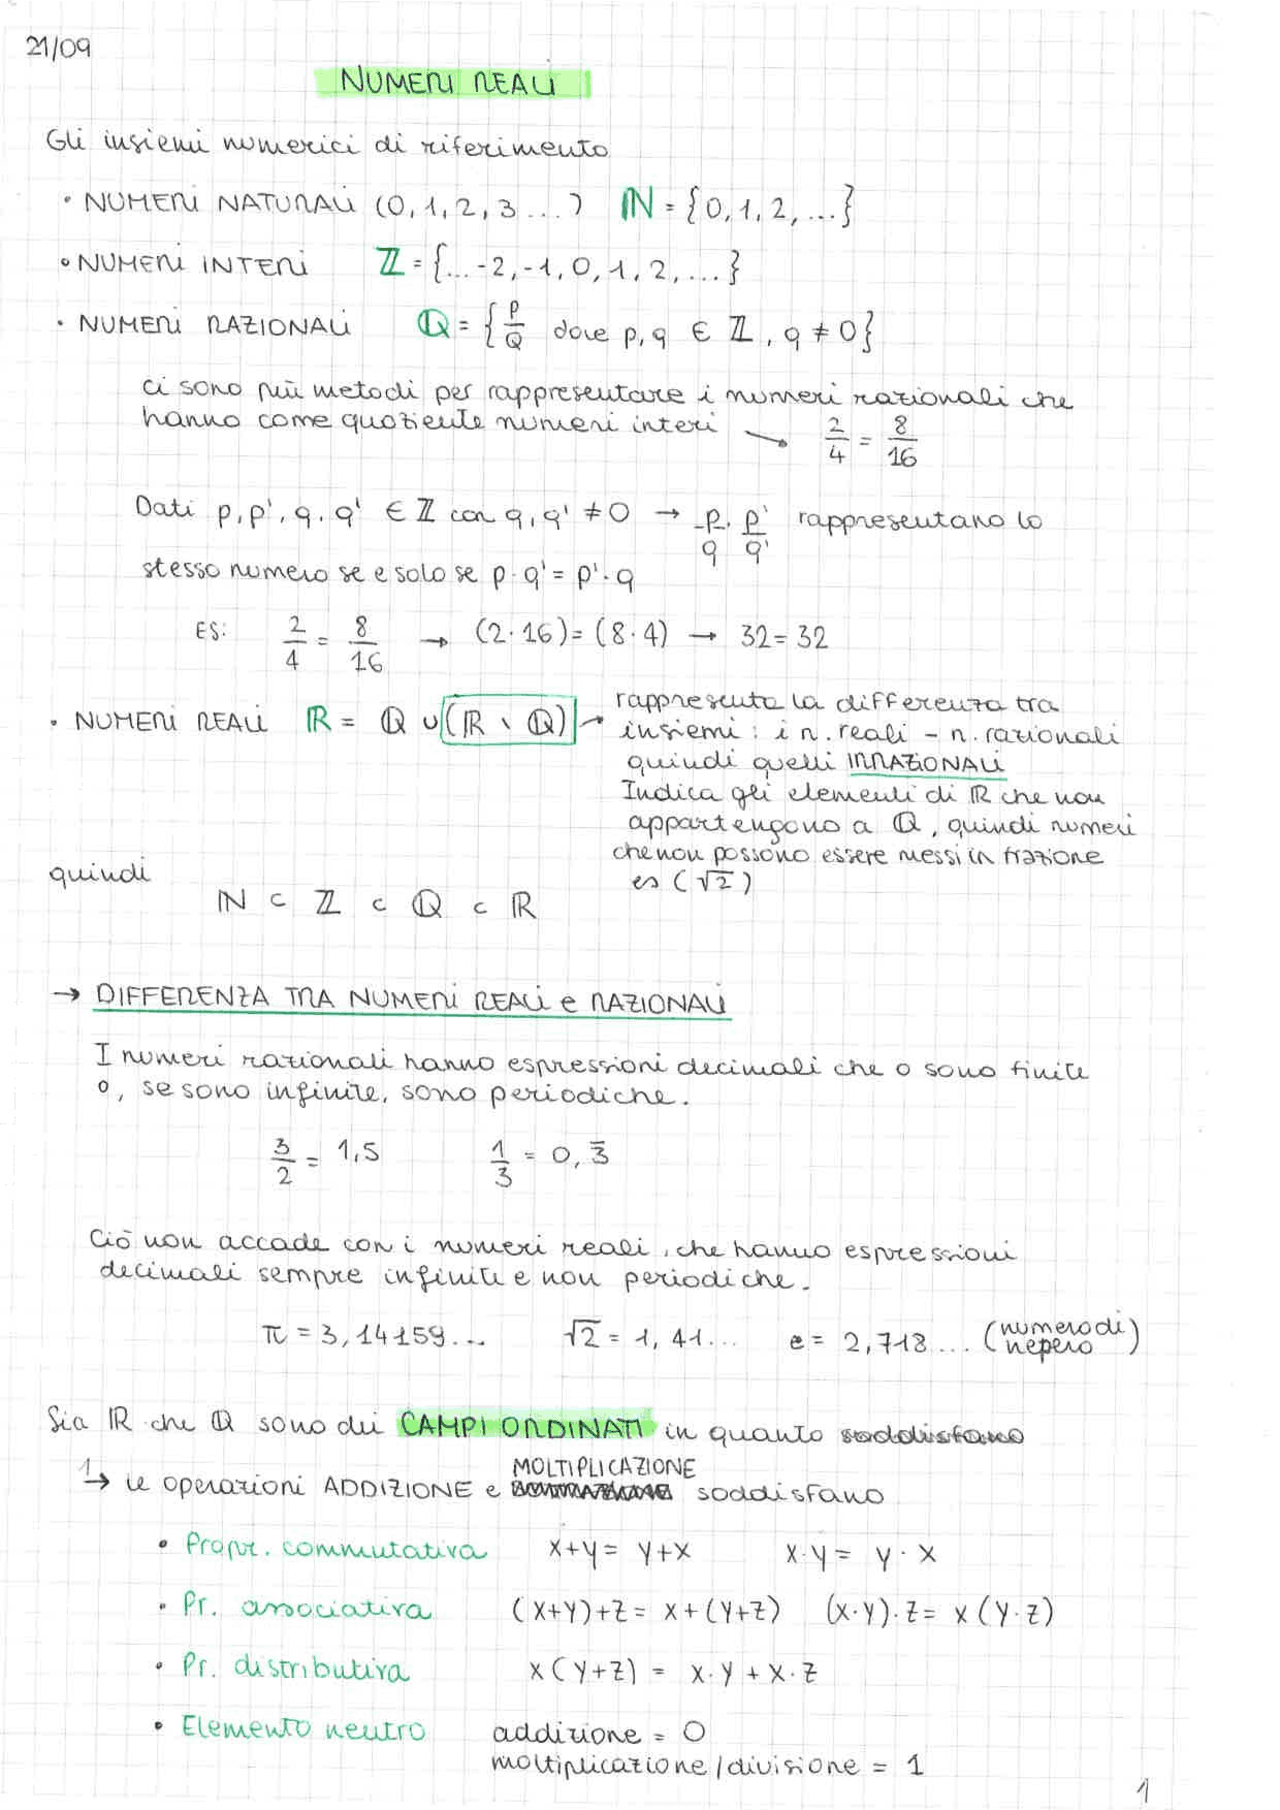 21/09
NUMERI REALI
Gli insiemi numerici di riferimento
• NUMERI NATURALI (0, 1, 2, 3 ...) ℕ = {0, 1, 2, ...}
• NUMERI INTERI ℤ = {... -2, -1, 0, 1, 2, ...}
• NUMERI RAZIONALI ℚ = {p/Q dove p, q ∈ ℤ, q ≠ 0}
ci sono più metodi per rappresentare i numeri razionali che
hanno come quoziente numeri interi → 2/4 = 8/16
Dati p, p', q, q' ∈ ℤ con q, q' ≠ 0 → p/q, p'/q' rappresentano lo
stesso numero se e solo se p · q' = p' · q
ES: 2/4 = 8/16 → (2·16) = (8·4) → 32 = 32
• NUMERI REALI ℝ = ℚ ∪ (ℝ \ ℚ) → rappresenta la differenza tra
insiemi: i n. reali - n. razionali
quindi quelli IRRAZIONALI
Indica gli elementi di ℝ che non
appartengono a ℚ, quindi numeri
che non possono essere messi in frazione
es (√2)
quindi
ℕ ⊂ ℤ ⊂ ℚ ⊂ ℝ
→ DIFFERENZA TRA NUMERI REALI e RAZIONALI
I numeri razionali hanno espressioni decimali che o sono finite
o, se sono infinite, sono periodiche.
3/2 = 1,5 1/3 = 0,3̅
Ciò non accade con i numeri reali, che hanno espressioni
decimali sempre infinite e non periodiche.
π = 3,14159... √2 = 1,41... e = 2,718... (numero di nepero)
Sia ℝ che ℚ sono dei CAMPI ORDINATI in quanto soddisfano
1→ le operazioni ADDIZIONE e MOLTIPLICAZIONE soddisfano
• Propr. commutativa x+y = y+x x·y = y·x
• Pr. associativa (x+y)+z = x+(y+z) (x·y)·z = x(y·z)
• Pr. distributiva x(y+z) = x·y + x·z
• Elemento neutro addizione = 0
moltiplicazione/divisione = 1
1